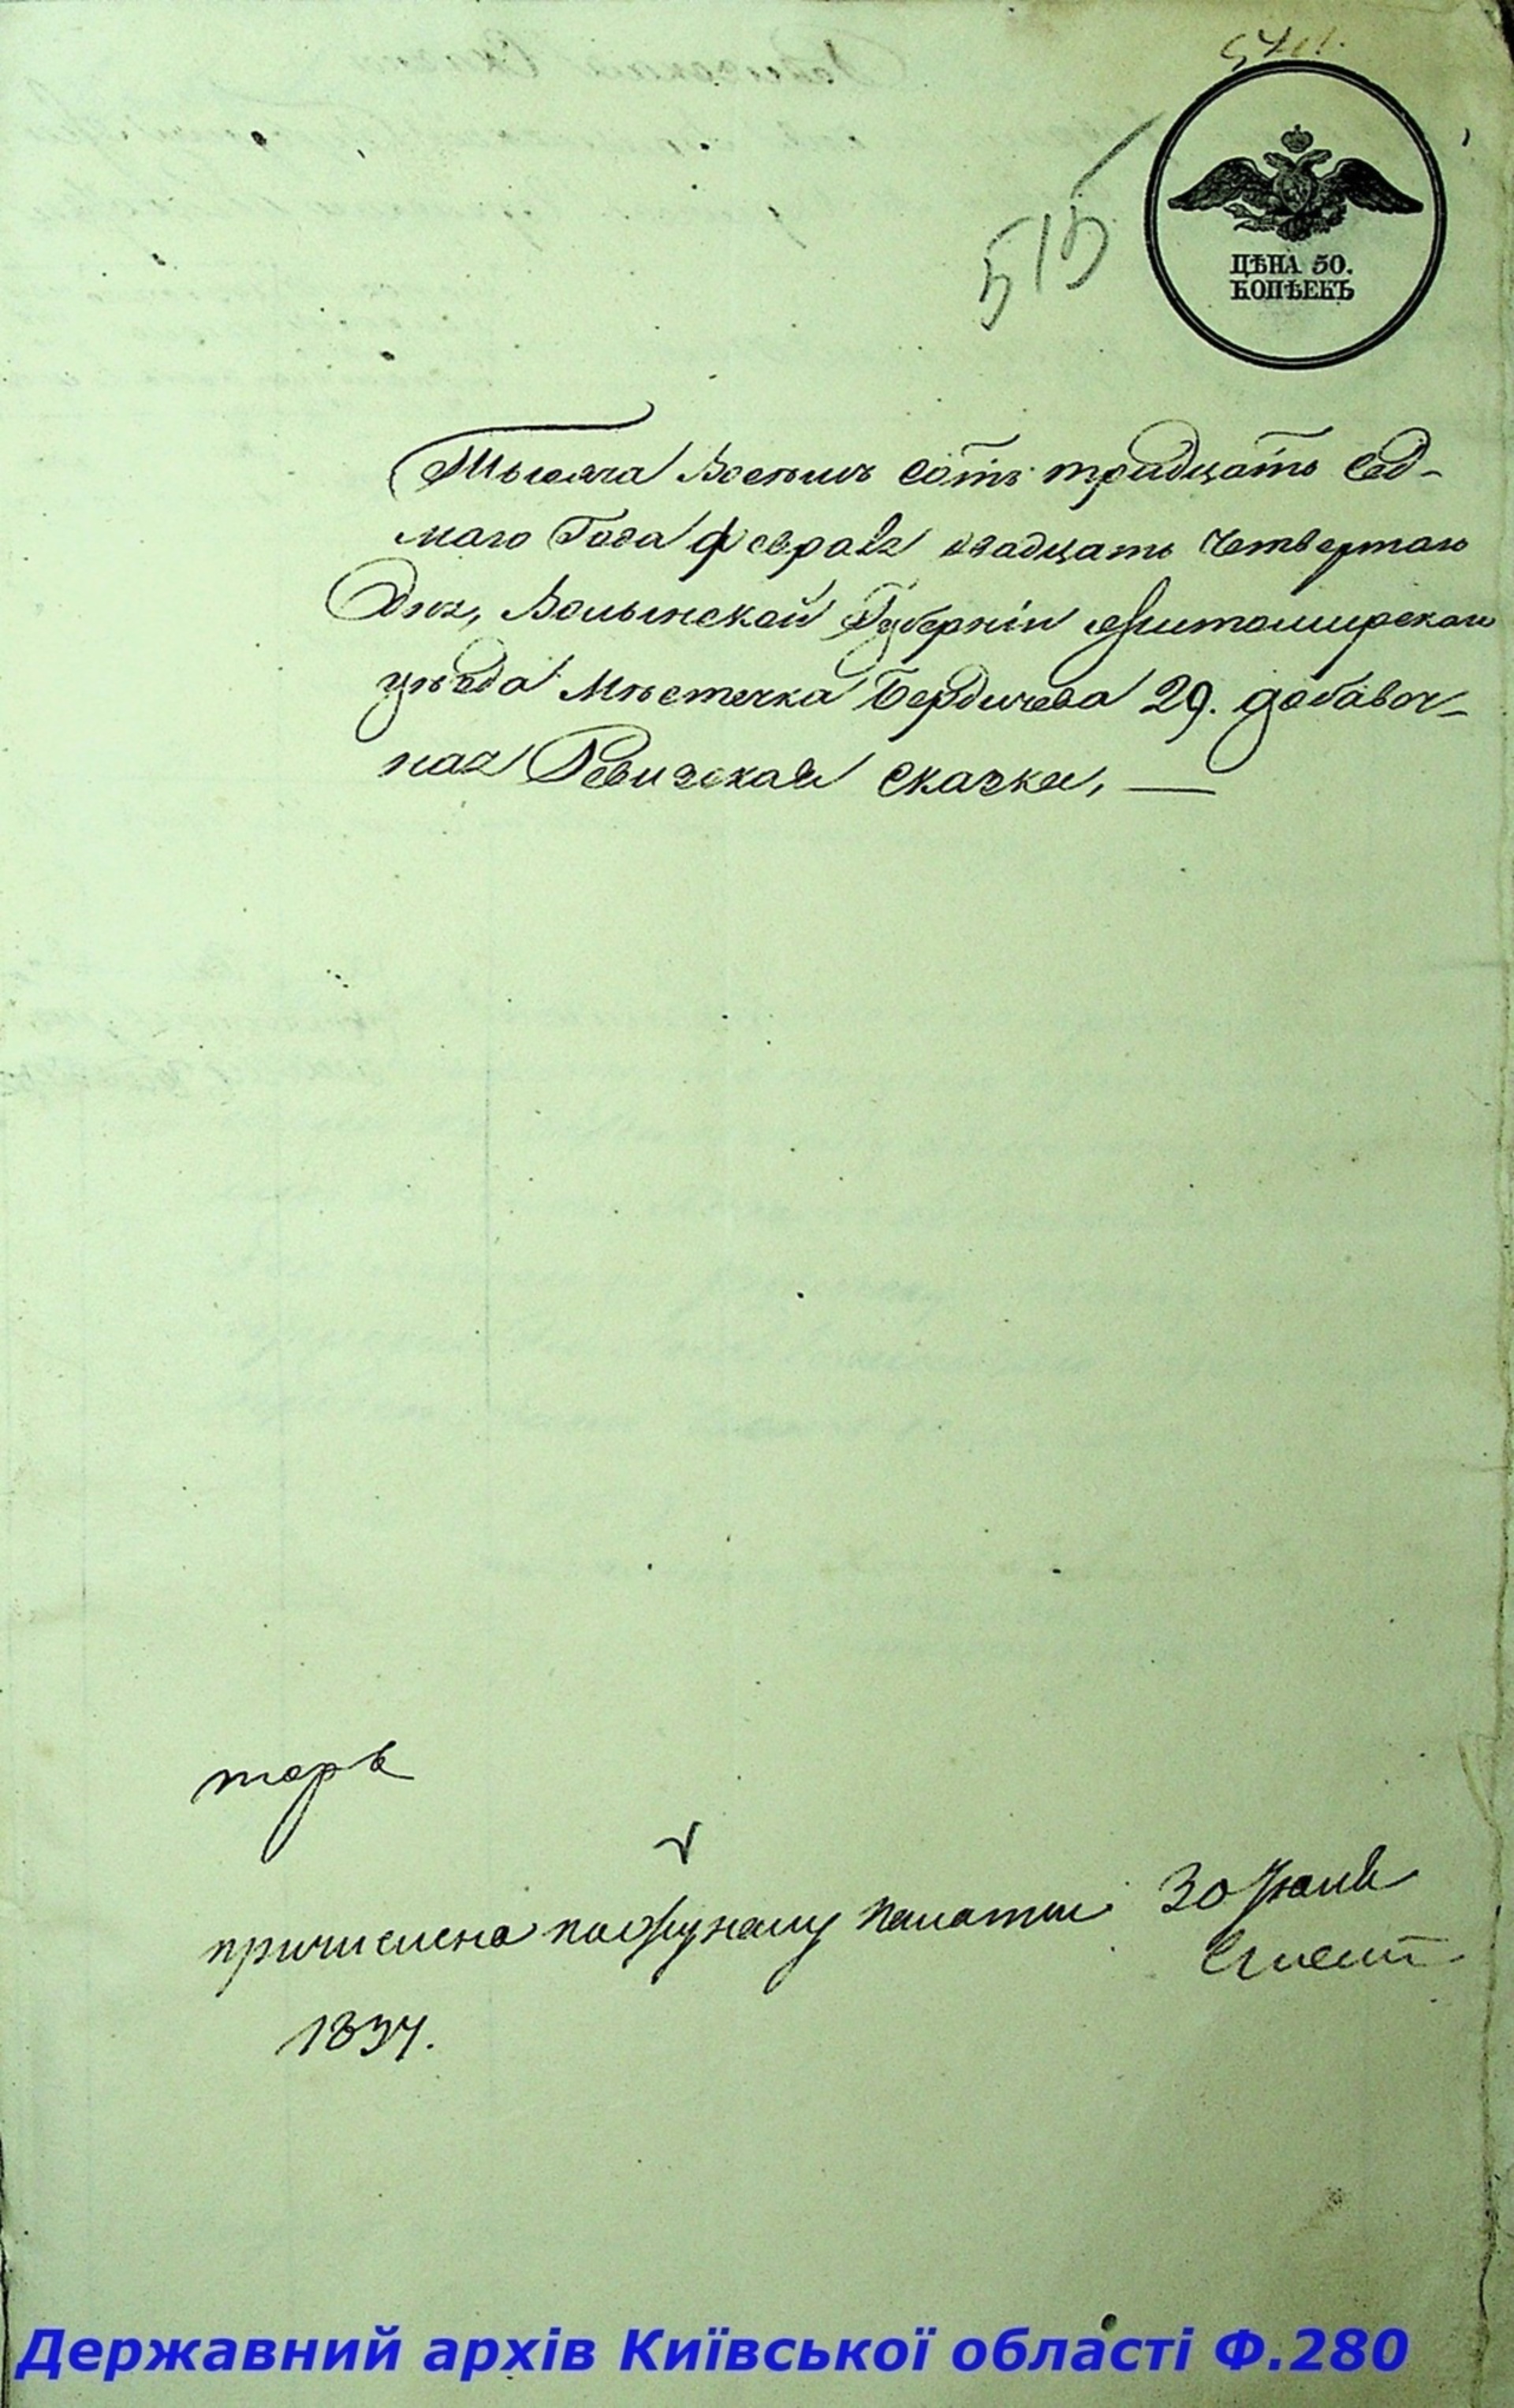 515
ЦѢНА 50.
КОПѢЕКЪ
Тысяча Восемъ сотъ тридцать сед-
маго Года февраля двадцать Четвертаго
Дня, Волынской Губерніи Житомирскаго
уѣзда Мѣстечка Бердичева 29. добавоч-
ная Ревизская скаска,
причислена по журналу палаты 30 Июня
1837.
Державний архів Київської області Ф.280